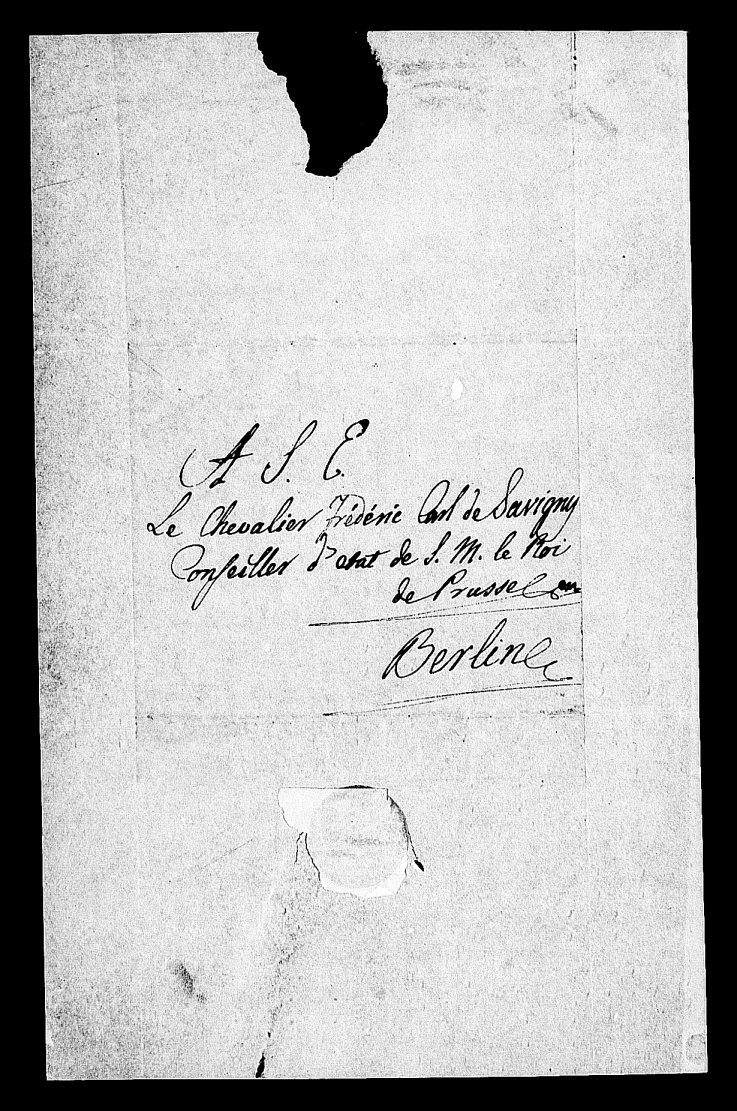 A S. E.
Le Chevalier Frédéric Carl de Savigny
Conseiller d'etat de S. M. le Roi
de Prusse en
Berlin